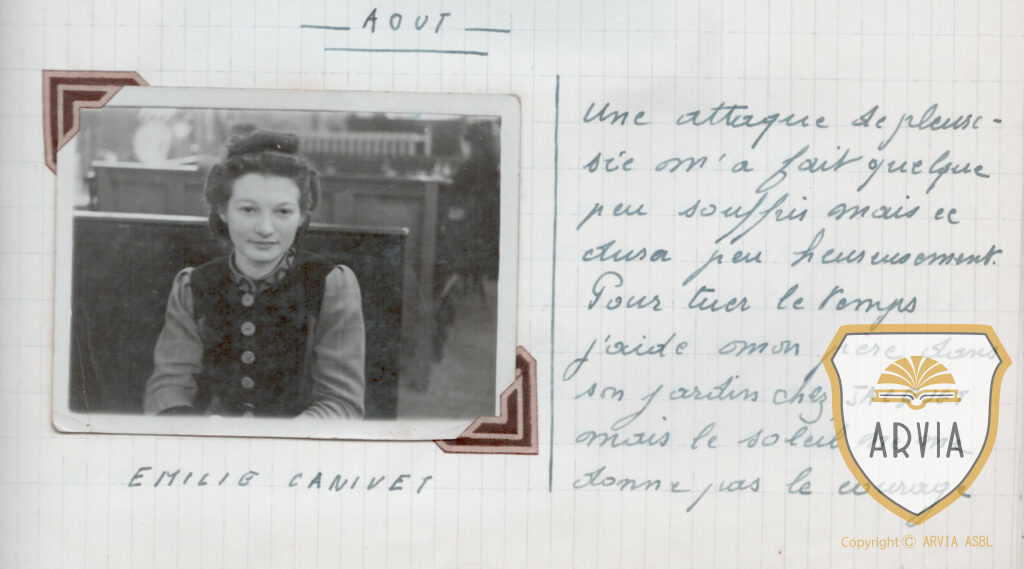 AOUT
Une attaque de pleuré-
sie m'a fait quelque
peu souffrir mais ce
dura peu heureusement.
Pour tuer le temps
j'aide mon père dans
son jardin chez
mais le soleil ne me
donne pas le courage
EMILIE CANIVET
ARVIA
Copyright © ARVIA ASBL